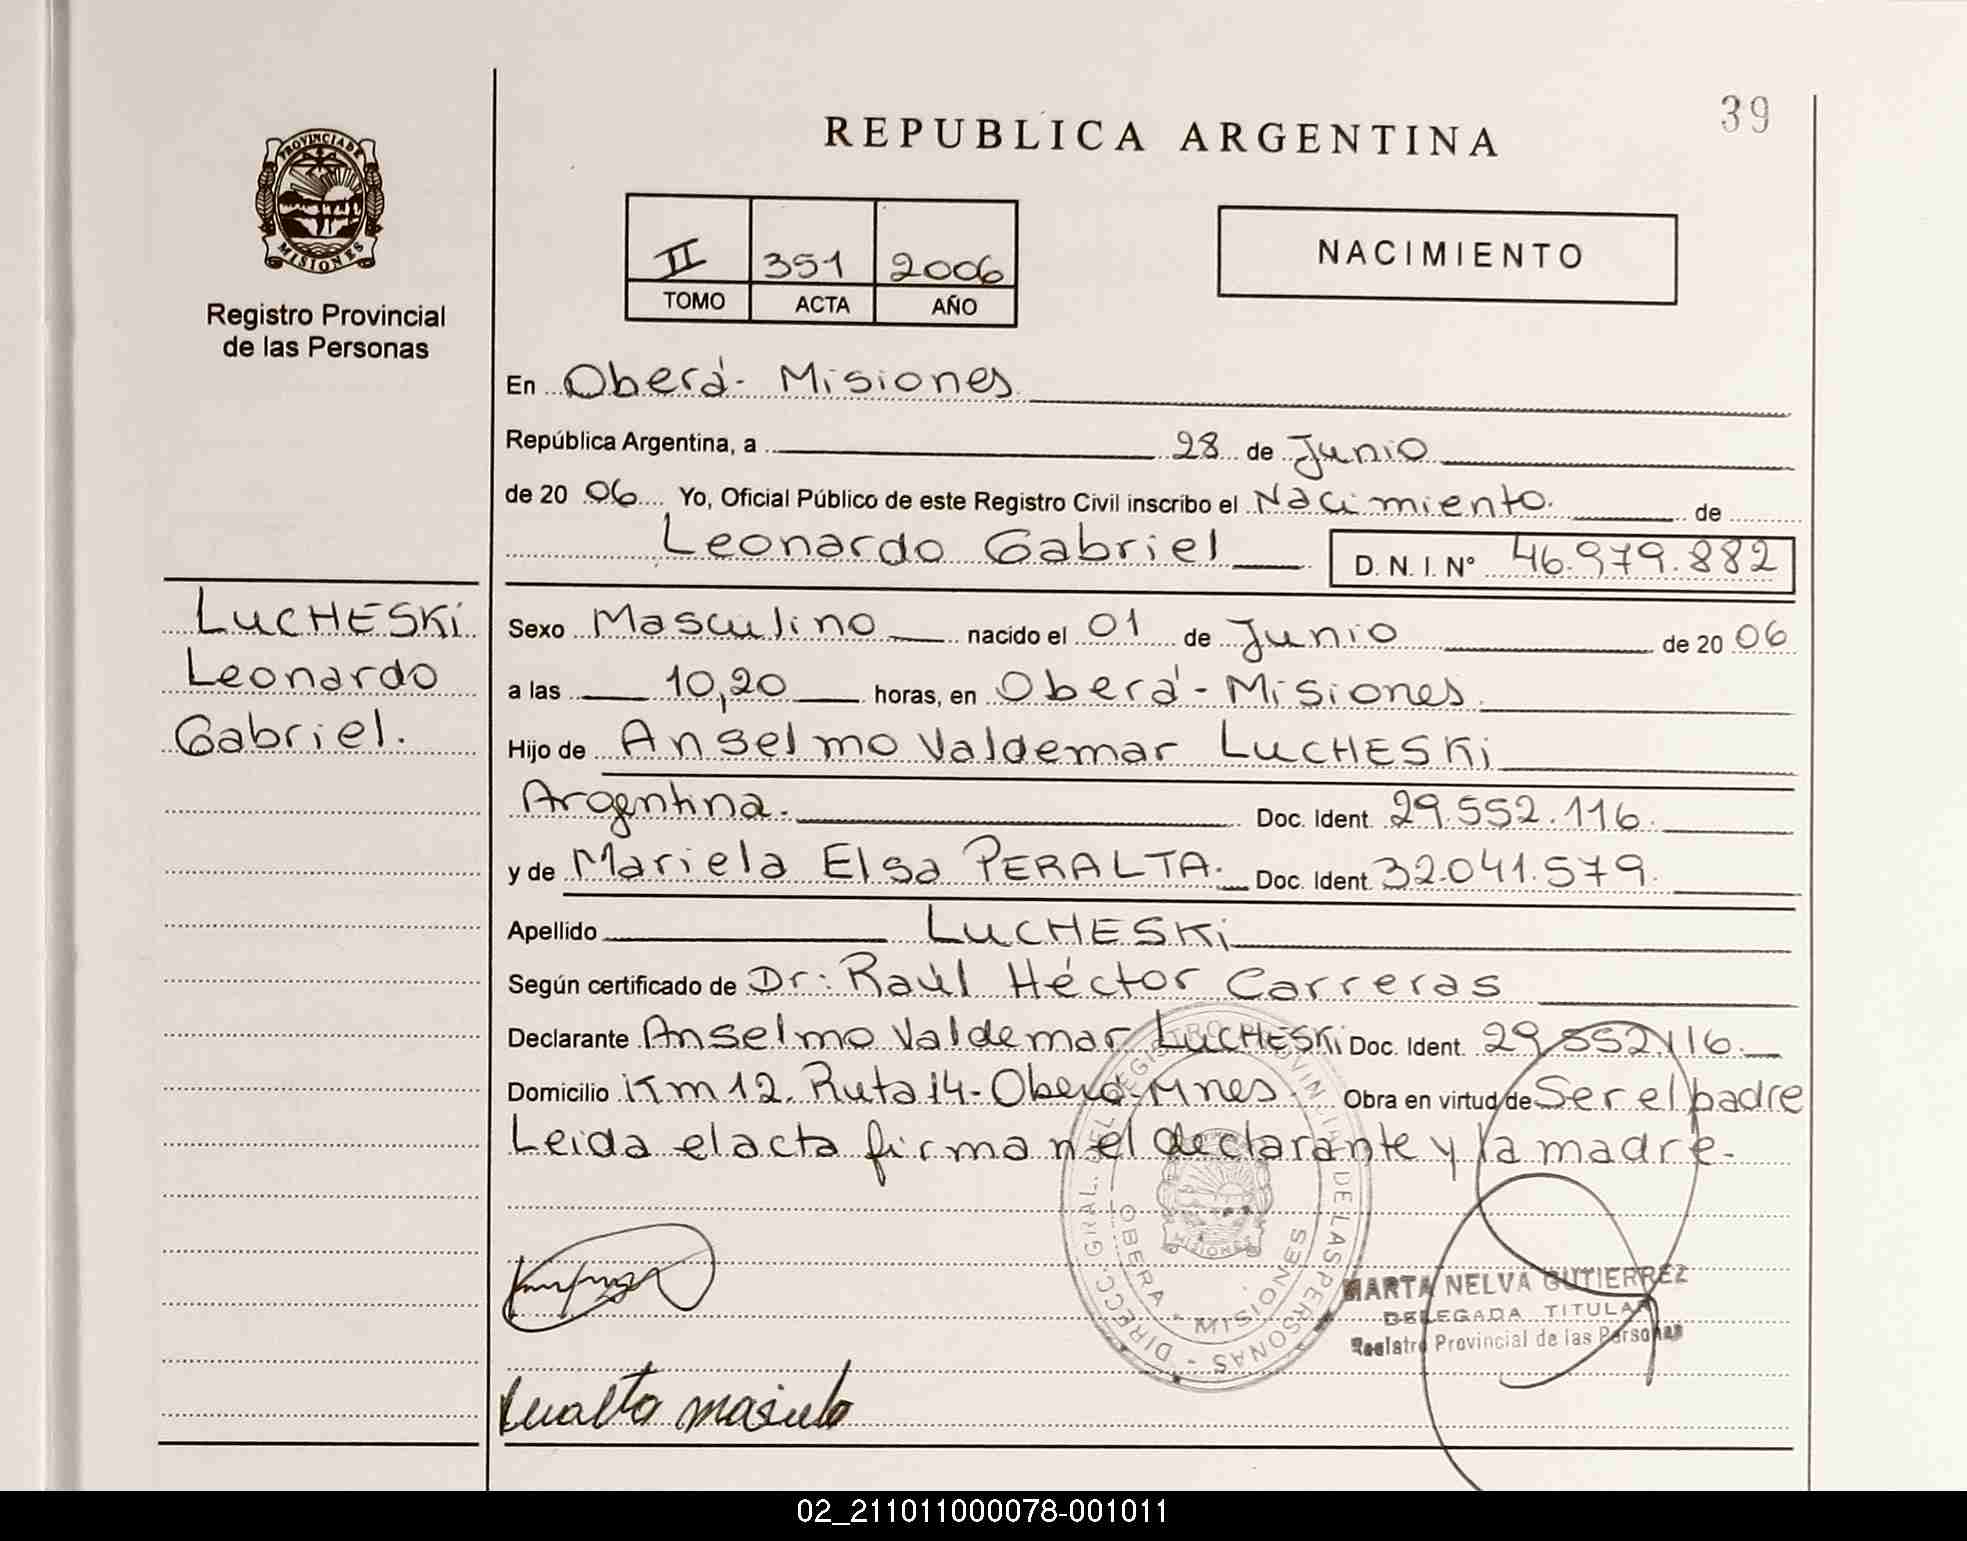 39
REPUBLICA ARGENTINA
PROVINCIA DE
MISIONES
Registro Provincial
de las Personas
II 351 2006
TOMO ACTA AÑO
NACIMIENTO
En Oberá - Misiones
República Argentina, a 28 de Junio
de 20 06 Yo, Oficial Público de este Registro Civil inscribo el Nacimiento. de
Leonardo Gabriel D. N. I. N° 46.979.882
LUCHESKi
Leonardo
Gabriel.
Sexo Masculino nacido el 01 de Junio de 20 06
a las 10,20 horas, en Oberá - Misiones
Hijo de Anselmo Valdemar LUCHESKi
Argentina. Doc. Ident. 29.552.116.
y de Mariela Elsa PERALTA. Doc. Ident. 32.041.579.
Apellido LUCHESKi
Según certificado de Dr: Raúl Héctor Carreras
Declarante Anselmo Valdemar LUCHESKi Doc. Ident. 29.552.116.
Domicilio Km 12. Ruta 14 - Oberá - Mnes. Obra en virtud de Ser el padre
Leida el acta firman el declarante y la madre.
DIRECC. GRAL. DEL REGISTRO PROVINCIAL DE LAS PERSONAS
OBERA * MISIONES
MISIONES
MARTA NELVA GUTIERREZ
DELEGADA TITULAR
Registro Provincial de las Personas
02_211011000078-001011